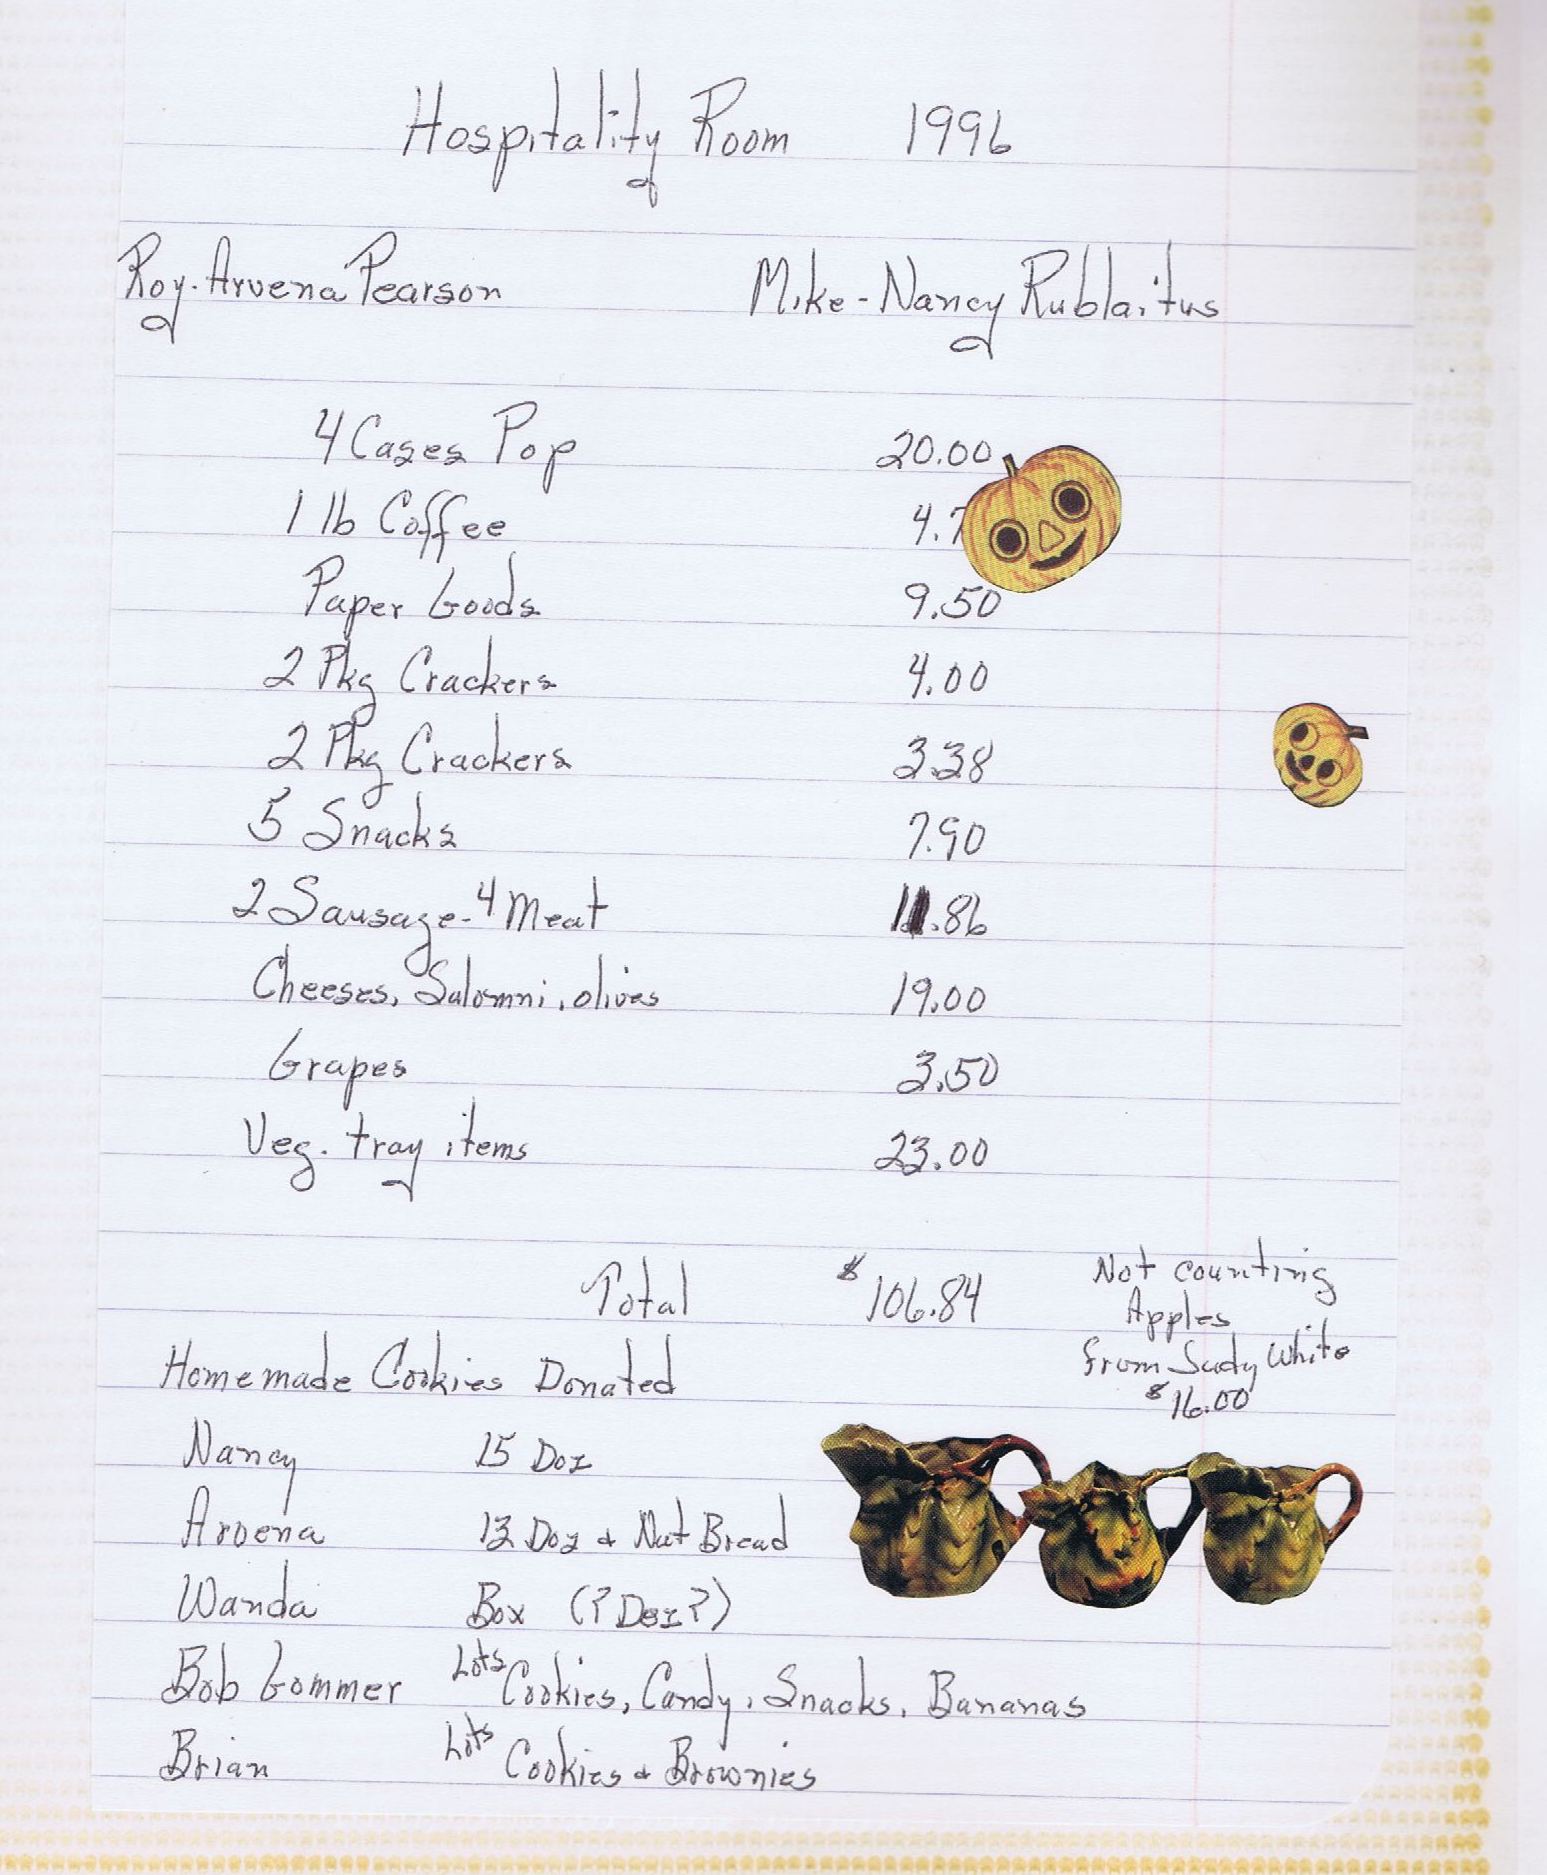 Hospitality Room 1996
Roy-Arvena Pearson Mike-Nancy Rublaitus
4 Cases Pop 20.00
1 lb Coffee 4.7
Paper Goods 9.50
2 Pkg Crackers 4.00
2 Pkg Crackers 3.38
5 Snacks 7.90
2 Sausage-4 Meat 11.86
Cheeses, Salomni, olives 19.00
Grapes 3.50
Veg. tray items 23.00
Total $106.84
Not counting
Apples
from Judy White
$16.00
Homemade Cookies Donated
Nancy 15 Doz
Arvena 13 Doz & Nut Bread
Wanda Box (? Doz ?)
Bob Gommer Lots Cookies, Candy, Snacks, Bananas
Brian Lots Cookies & Brownies